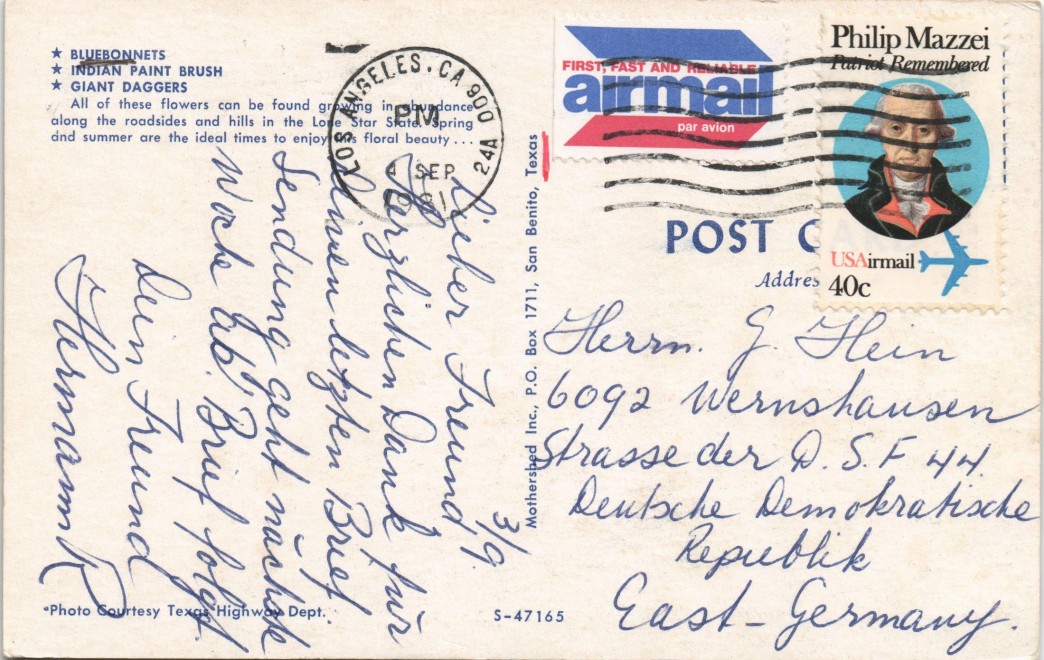 ★ BLUEBONNETS
★ INDIAN PAINT BRUSH
★ GIANT DAGGERS
All of these flowers can be found growing in abundance
along the roadsides and hills in the Lone Star State. Spring
and summer are the ideal times to enjoy this floral beauty ...
LOS ANGELES, CA 900 24A
PM
4 SEP
1981
FIRST, FAST AND RELIABLE
airmail
par avion
Philip Mazzei
Patriot Remembered
USAirmail
40c
POST C
Addres
Mothershed Inc., P.O. Box 1711, San Benito, Texas
3/9.
Lieber Freund
Herzlichen Dank für
Deinen letzten Brief.
Sendung geht nächste
Woche ab. Brief folgt.
Dein Freund
Hermann R
Herrn. G. Hein
6092 Wernshausen
Strasse der D.S.F 44.
Deutsche Demokratische
Republik
East-Germany.
*Photo Courtesy Texas Highway Dept.
S-47165